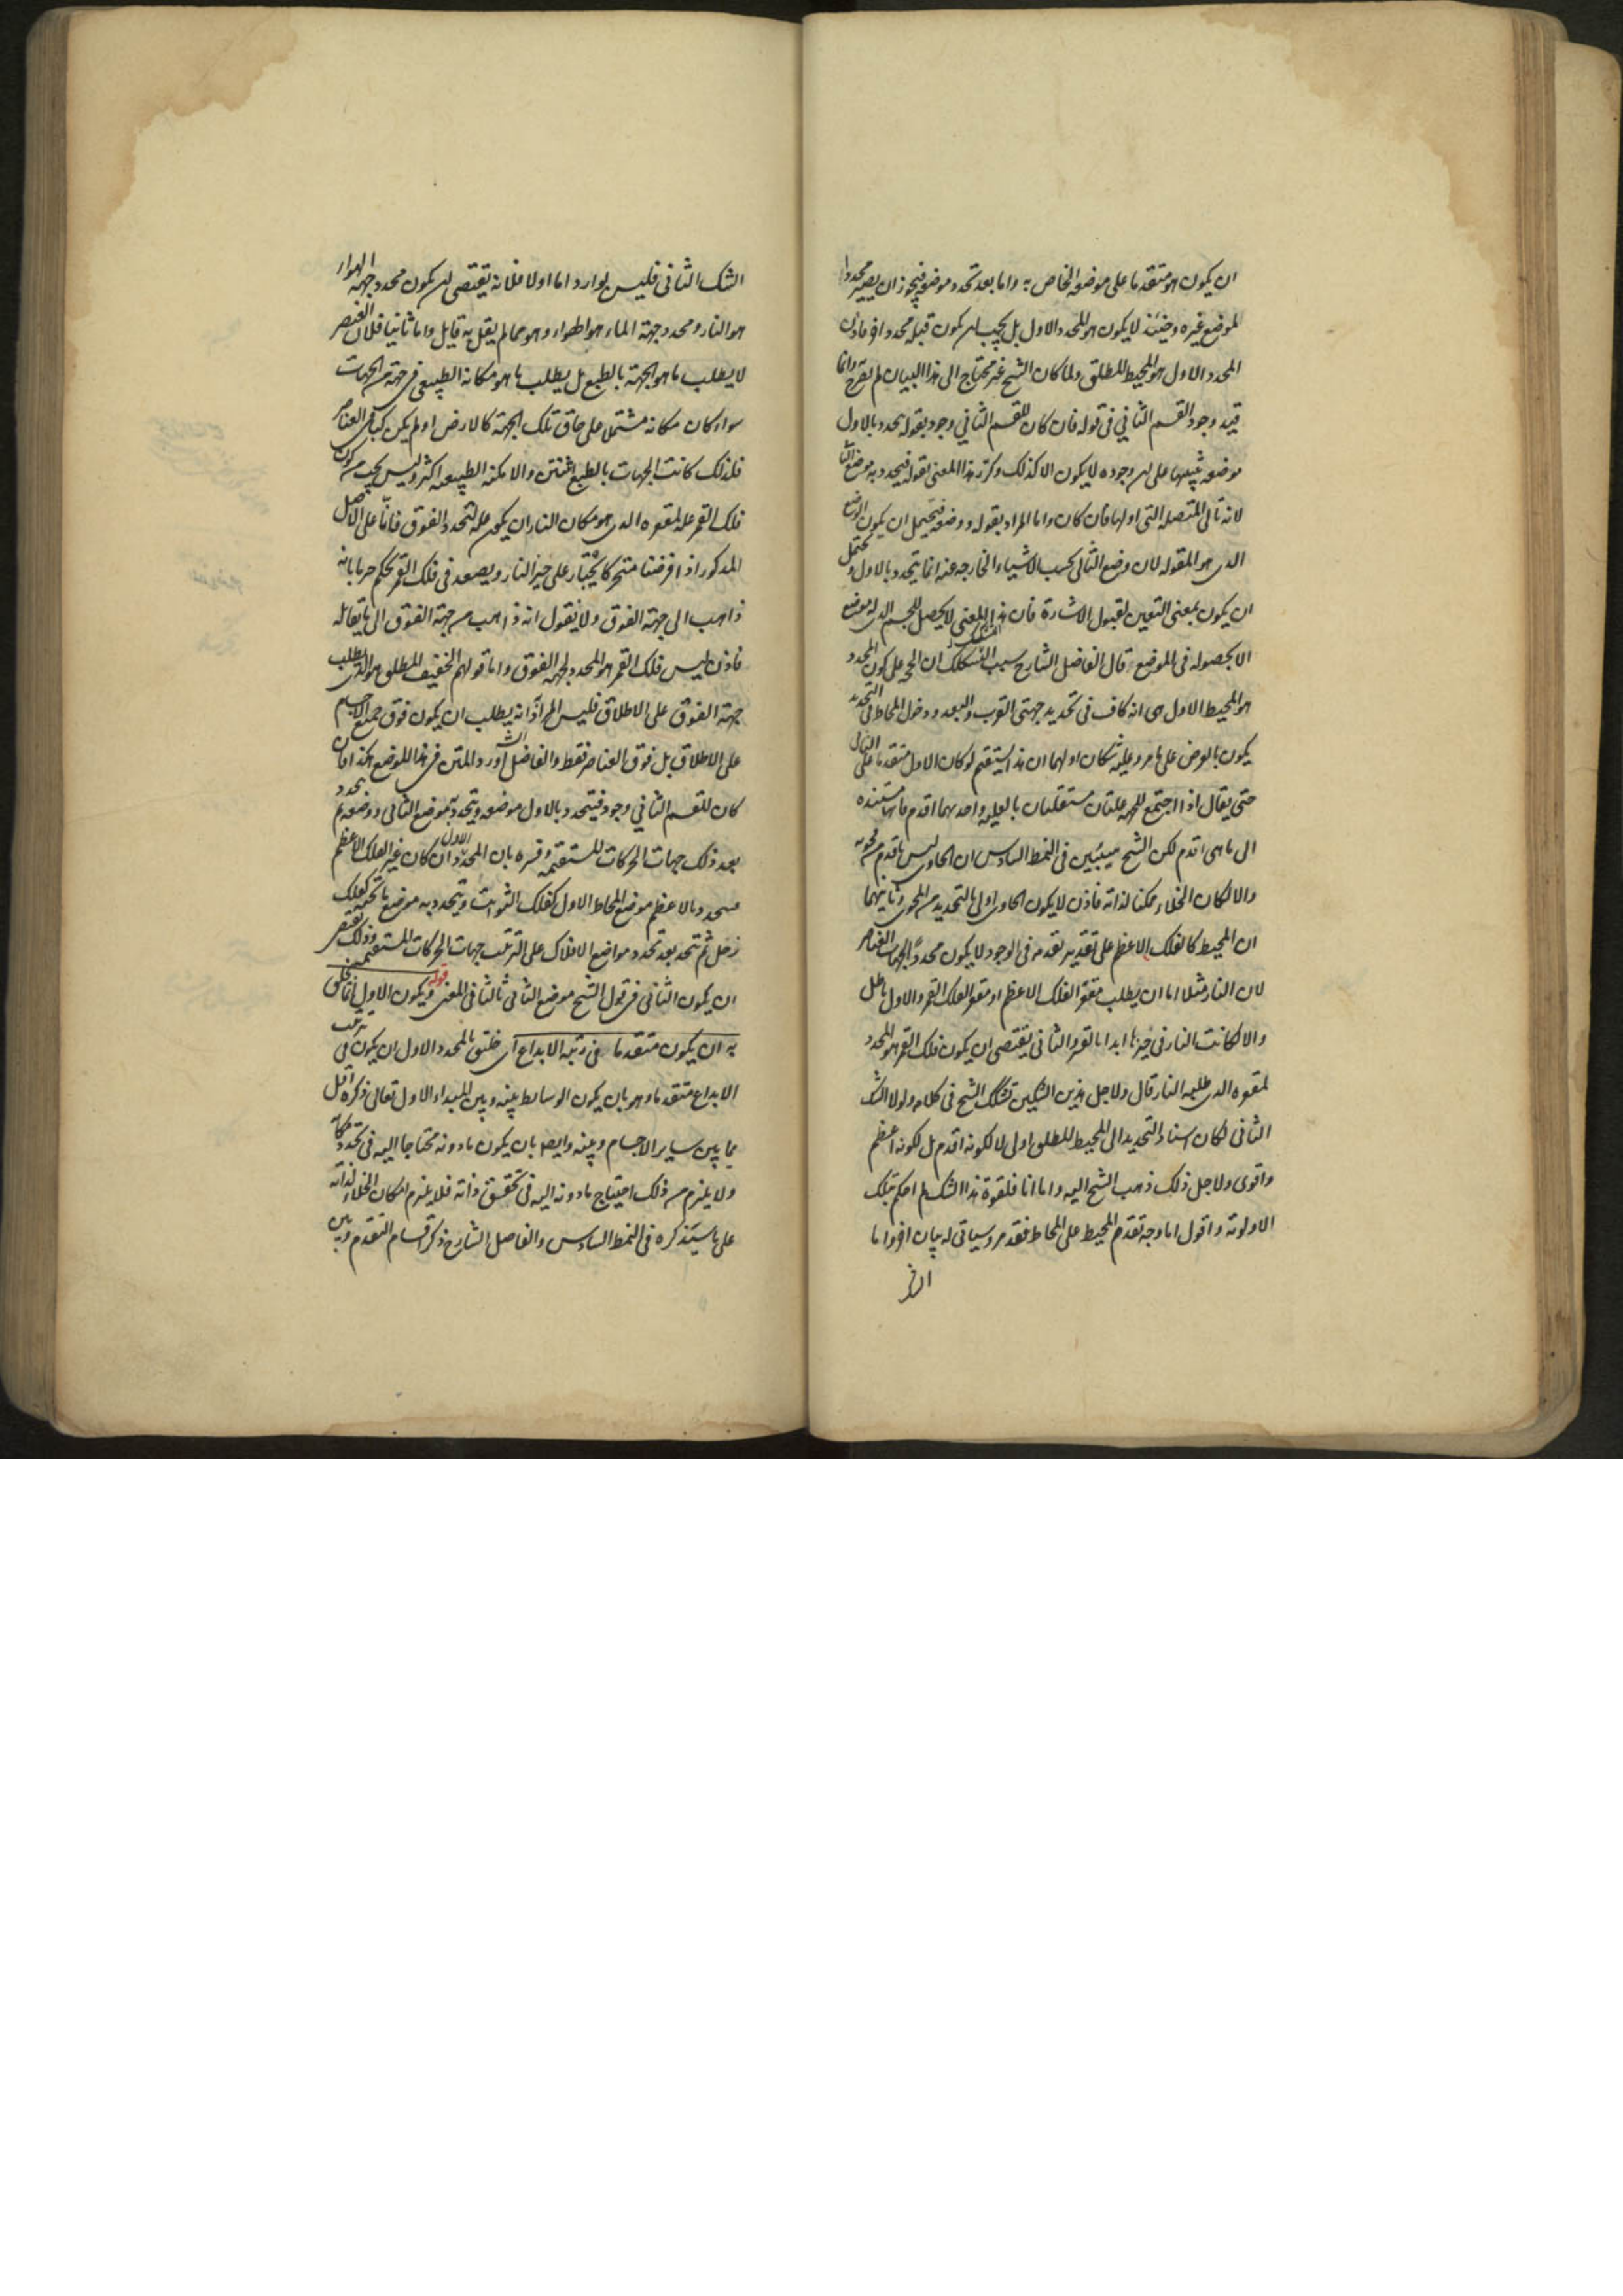 ان يكون هو متقدما على موضعه الخاص به واما بعد تحدد موضعه فيجوز ان يصير محددا
لموضع غيره وحينئذ لا يكون هو المحدد الاول بل يجب ان يكون قبله محدد اخر فاذن
المحدد الاول هو المحيط المطلق ولما كان الشيخ غير محتاج الى هذا البيان لم يصرح وانما
قيد وجود القسم الثاني في قوله فان كان للقسم الثاني وجود بقوله يحدد بالاول
موضعه تنبيها على ان وجوده لا يكون الا كذلك وكرر هذا المعنى بقوله فيحدد به موضع الثا
لانه تالى المتصلة التي اولها فان كان واما المراد بقوله ووضعه فيحتمل ان يكون الوضع
الذى هو المقولة لان وضع الثانى بحسب الاشياء الخارجة عنه انما يتحدد بالاول ويحتمل
ان يكون بمعنى التعين لقبول الاشارة فان هذا المعنى لا يحصل للجسم الذى له موضع
الا بحصوله فى الموضع قال الفاضل الشارح سبب التشكك ان الحجة على كون المحدد
هو المحيط الاول هى انه كاف فى تحديد جهتى القرب والبعد ودخول المحاط فى التحديد
يكون بالعرض على ما مر وعليه شكان اولهما ان هذا يستقيم لو كان الاول متقدما على الثانى
حتى يقال اذا اجتمع للجهة علتان مستقلتان بالعلية واحدهما اقدم فانها مستنده
الى ما هى اقدم لكن الشيخ سيبين فى النمط السادس ان الحاوى ليس باقدم من محويه
والا لكان الخلاء ممكنا لذاته فاذن لا يكون الحاوى اولى بالتحديد من المحوى وثانيهما
ان المحيط كالفلك الاعظم على تقدير تقدمه فى الوجود لا يكون محددا لجهات العناصر
لان النار مثلا اما ان يطلب مقعر الفلك الاعظم او مقعر الفلك القمر والاول باطل
والا لكانت النار فى حيزها ابدا بالقسر والثانى يقتضى ان يكون فلك القمر هو المحدد
لمقعره الذى يطلبه النار قال ولاجل هذين الشكين تشكك الشيخ فى كلامه ولولا الشك
الثانى لكان اسناد التحديد الى المحيط المطلق اولى لا لكونه اقدم بل لكونه اعظم
واقوى ولاجل ذلك ذهب الشيخ اليه واما انا فلقوة هذا الشك لم احكم بتلك
الاولوية واقول اما وجه تقدم المحيط على المحاط فقد مر وسياتى له بيان اخر واما
الشك الثانى فليس بوارد اما اولا فلانه يقتضى ان يكون محدد جهة الهواء
هو النار ومحدد جهة الماء هو الهواء وهو مما لم يقل به قايل واما ثانيا فلان العنصر
لا يطلب ما هو الجهة بالطبع بل يطلب ما هو مكانه الطبيعى فى جهة من الجهات
سواء كان مكانه مشتملا على حاق تلك الجهة كالارض او لم يكن كباقى العناصر
فلذلك كانت الجهات بالطبع اثنتين والامكنة الطبيعية اكثر وليس يجب من كون
فلك القمر علة لمقعره الذى هو مكان النار ان يكون علة لتحدد الفوق فانا على الاصل
المذكور اذا فرضنا متحركا يجتاز على حيز النار ويصعد فى فلك القمر نحكم جزما بانه
ذاهب الى جهة الفوق ولا نقول انه ذاهب من جهة الفوق الى ما يقابله
فاذن ليس فلك القمر هو المحدد لجهة الفوق واما قولهم الخفيف المطلق هو الذى يطلب
جهة الفوق على الاطلاق فليس المراد انه يطلب ان يكون فوق جميع الاجسام
على الاطلاق بل فوق العناصر فقط والفاضل الشارح اورد المتن فى هذا الموضع هكذا فان
كان للقسم الثانى وجود فيتحدد بالاول موضعه ويتحدد به موضع الثانى ووضعه ثم يحدد
بعد ذلك جهات الحركات المستقيمة وفسره بان المحدد الاول ان كان غير الفلك الاعظم
فيتحدد بالاعظم موضع المحاط الاول كفلك الثوابت ويتحدد به موضع ما تحته كفلك
زحل ثم تتحدد بعد تحدد مواضع الافلاك على الترتيب جهات الحركات المستقيمة وذلك يقتضى
ان يكون الثانى فى قول الشيخ موضع الثانى ثالثا فى المعنى قوله ويكون الاول انما يخلق
به ان يكون متقدما فى رتبة الابداع اى خليق بالمحدد الاول ان يكون فى ترتيب
الابداع متقدما وهو بان يكون الوسايط بينه وبين المبداء الاول تعالى ذكره اقل
مما بين ساير الاجسام وبينه وايضا بان يكون ما دونه محتاجا اليه فى تحدد مكانه
ولا يلزم من ذلك احتياج ما دونه اليه فى تحقق ذاته فلا يلزم امكان الخلاء لذاته
على ما سيذكره فى النمط السادس والفاضل الشارح ذكر اقسام التقدم وبين